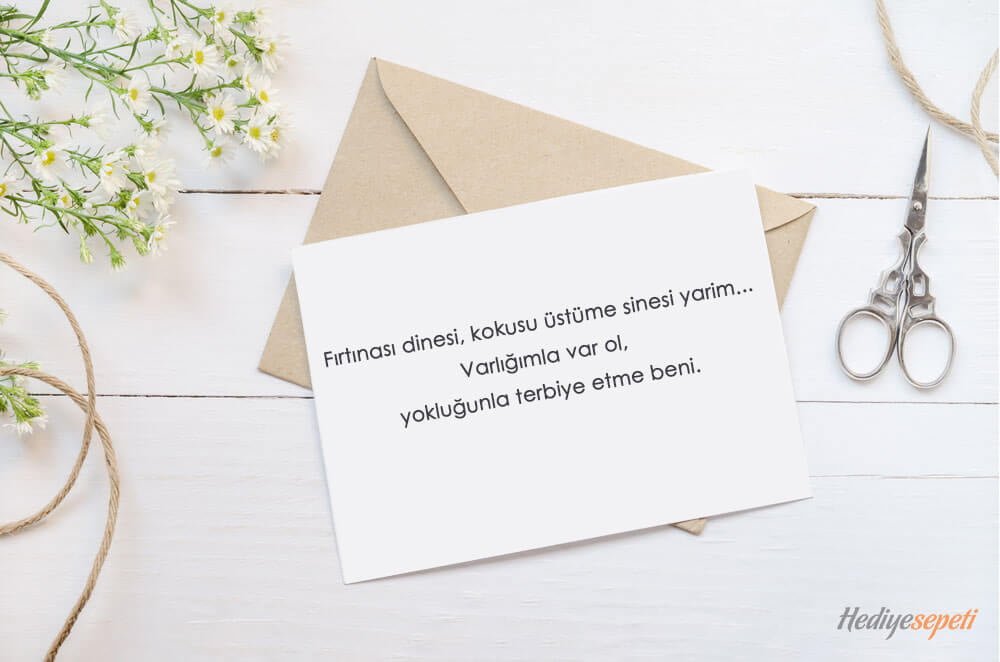 Fırtınası dinesi, kokusu üstüme sinesi yarim...
Varlığımla var ol,
yokluğunla terbiye etme beni.
Hediyesepeti